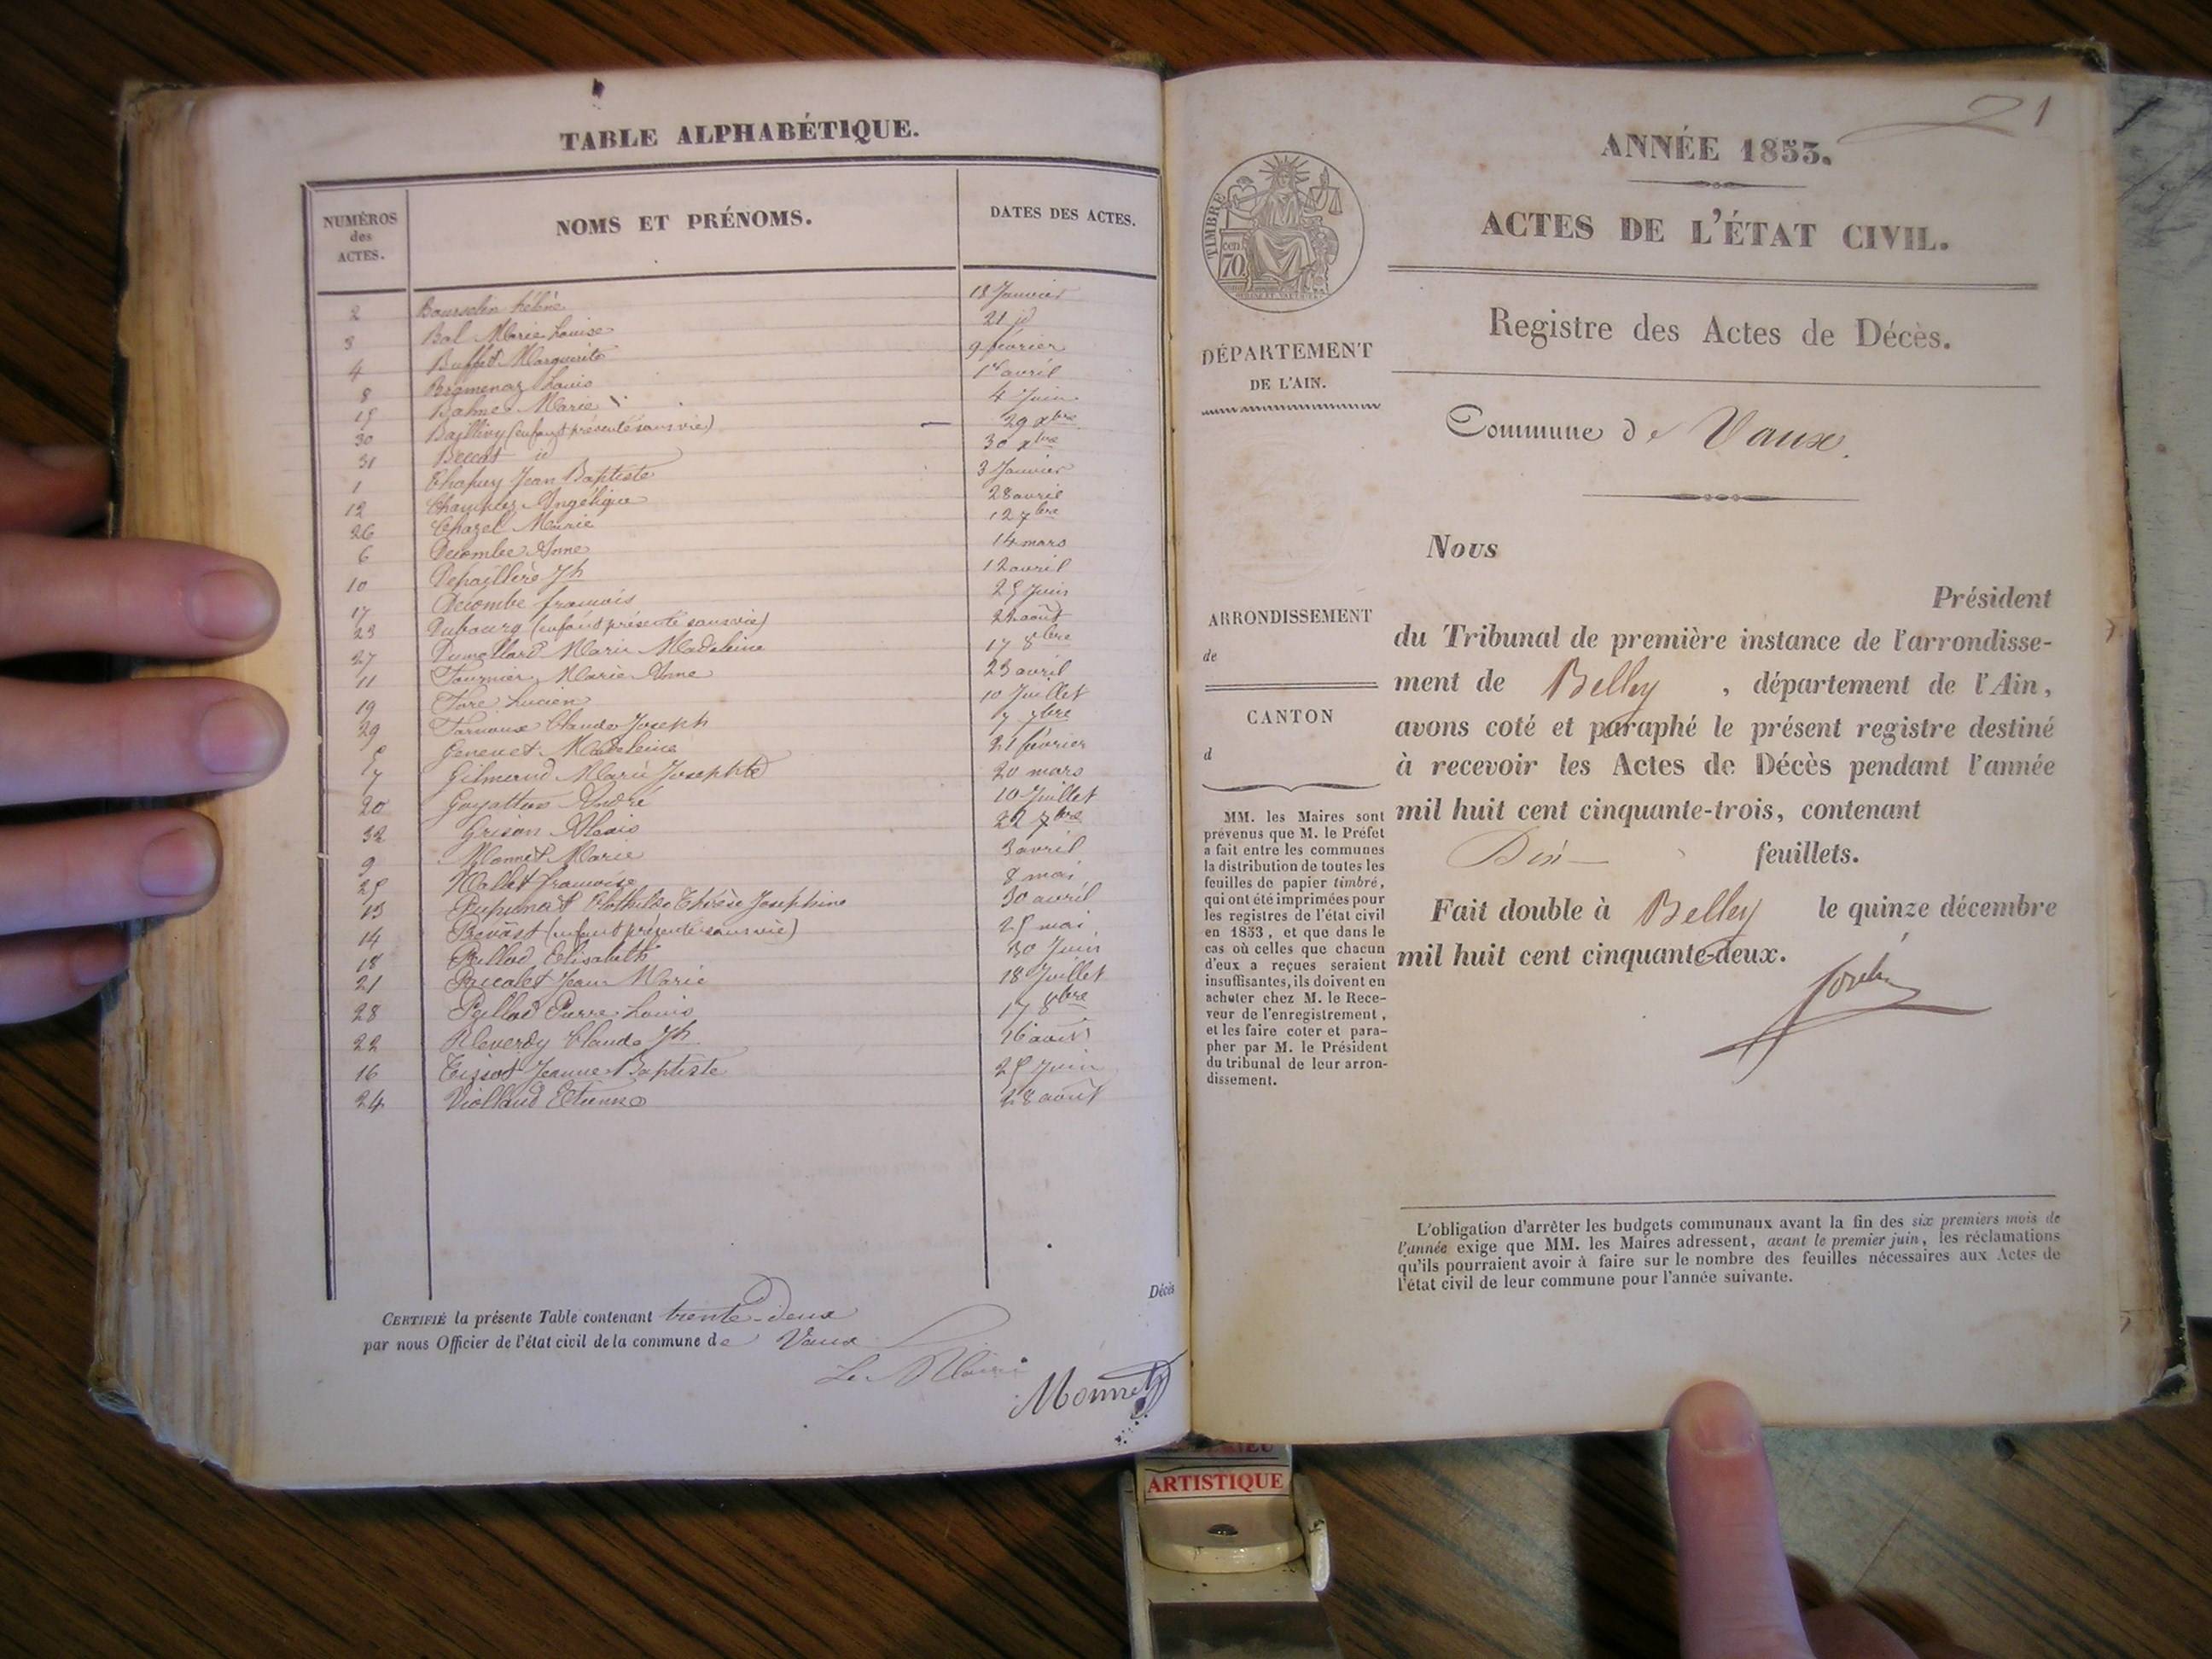 TABLE ALPHABÉTIQUE.
NUMÉROS
des
ACTES.
NOMS ET PRÉNOMS.
DATES DES ACTES.
2 Bourselin hélène 18 Janvier
3 Bal Marie Louise 21 id
4 Buffet Marguerite 9 février
8 Bremenaz Louis 1er avril
15 Balme Marie 4 Juin
30 Baillivy (enfant présenté sans vie) 29 xbre
31 Beccat id 30 xbre
1 Chapuy Jean Baptiste 3 Janvier
12 Angélique 28 avril
26 Chazel Marie 12 7bre
6 Decombe Anne 14 mars
10 Jh 12 avril
17 Decombe francois 25 Juin
23 Dubourg (enfant présenté sans vie) 22 août
27 Dumollard Marie Madeleine 17 8bre
11 Fournier Marie Anne 23 avril
19 Fare Lucien 10 Juillet
29 Claude Joseph 7bre
5 Genevet Madeleine 21 février
7 Marie Josephte 20 mars
20 André 10 Juillet
32 Grison Alexis 22
9 Monnet Marie 3 avril
25 Mallet francoise 8 mai
13 Clothilde Thérèse Josephine 30 avril
14 (enfant présenté sans vie) 25 mai
18 Elisabeth 30 Juin
21 Paccalet Jean Marie 18 Juillet
28 Pierre Louis 17 8bre
22 Reverdy Claude Jh 16 août
16 Tissot Jeanne Baptiste 25 Juin
24 Viollaud Etienne 28 août
Décès
CERTIFIÉ la présente Table contenant trente-deux
par nous Officier de l'état civil de la commune de Vaux
Le Maire
Monnet
21
ANNÉE 1853.
ACTES DE L'ÉTAT CIVIL.
TIMBRE
70
cen
Registre des Actes de Décès.
DÉPARTEMENT
DE L'AIN.
Commune de Vaux.
ARRONDISSEMENT
de
CANTON
d
MM. les Maires sont
prévenus que M. le Préfet
a fait entre les communes
la distribution de toutes les
feuilles de papier timbré,
qui ont été imprimées pour
les registres de l'état civil
en 1853, et que dans le
cas où celles que chacun
d'eux a reçues seraient
insuffisantes, ils doivent en
acheter chez M. le Rece-
veur de l'enregistrement,
et les faire coter et para-
pher par M. le Président
du tribunal de leur arron-
dissement.
Nous
Président
du Tribunal de première instance de l'arrondisse-
ment de Belley, département de l'Ain,
avons coté et paraphé le présent registre destiné
à recevoir les Actes de Décès pendant l'année
mil huit cent cinquante-trois, contenant
Dix feuillets.
Fait double à Belley le quinze décembre
mil huit cent cinquante-deux.
L'obligation d'arrêter les budgets communaux avant la fin des six premiers mois de
l'année exige que MM. les Maires adressent, avant le premier juin, les réclamations
qu'ils pourraient avoir à faire sur le nombre des feuilles nécessaires aux Actes de
l'état civil de leur commune pour l'année suivante.
ARTISTIQUE